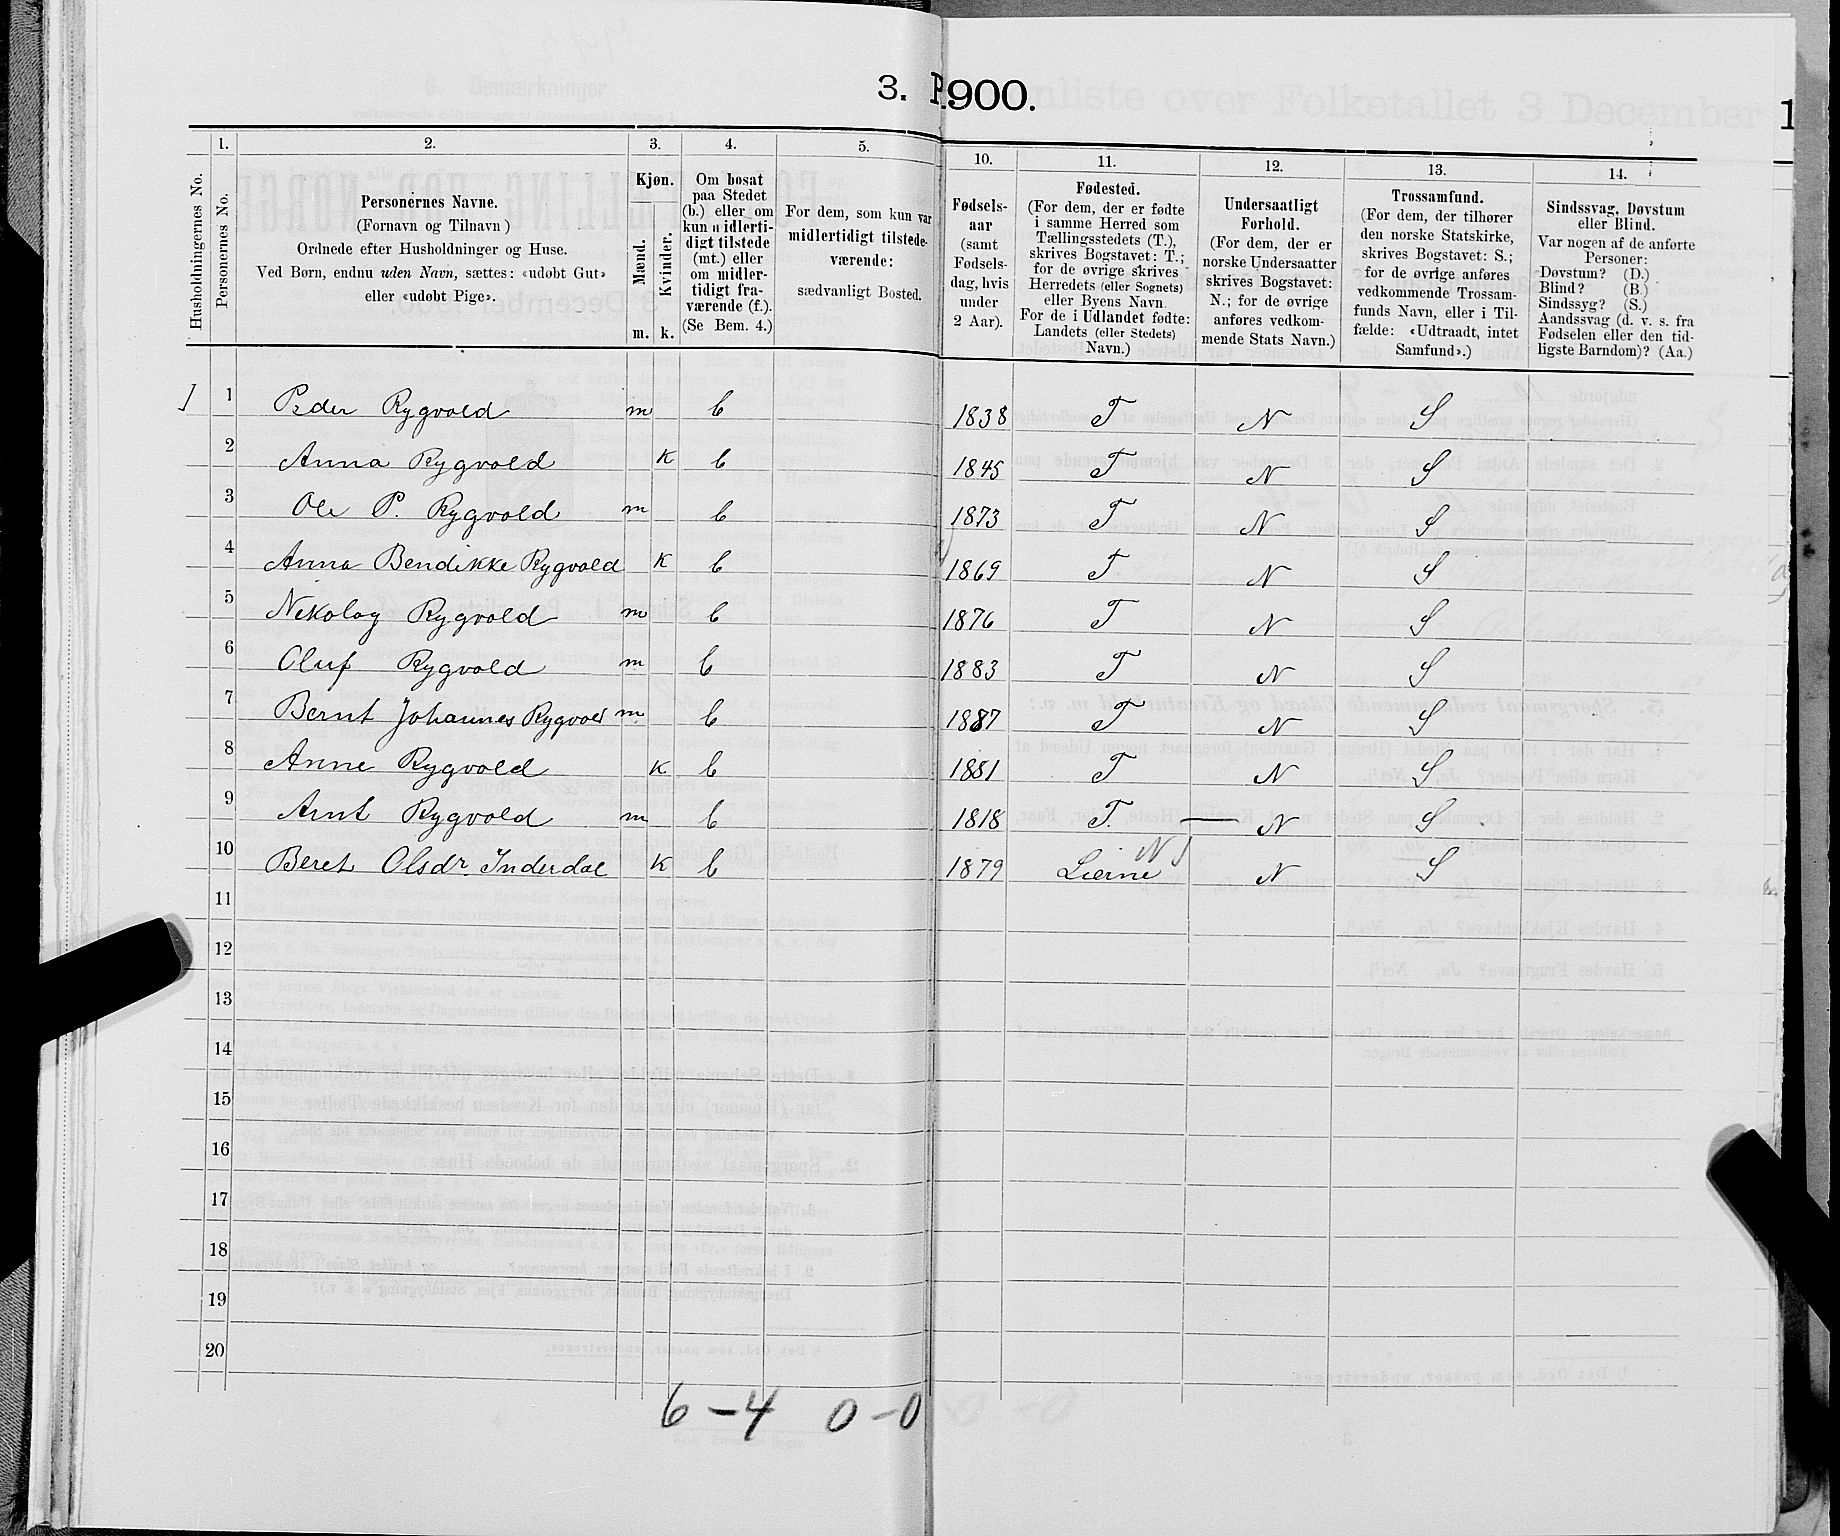 3. P.900.
1. 2. 3. 4. 5. 10. 11. 12. 13. 14.
Husholdningernes No.
Personernes No.
Personernes Navne.
(Fornavn og Tilnavn)
Ordnede efter Husholdninger og Huse.
Ved Børn, endnu uden Navn, sættes: «udøbt Gut»
eller «udøbt Pige».
Kjøn.
Mænd.
Kvinder.
m. k.
Om bosat
paa Stedet
(b.) eller om
kun midlerti-
digt tilstede
(mt.) eller
om midler-
tidigt fra-
værende (f.).
(Se Bem. 4.)
For dem, som kun var
midlertidigt tilstede-
værende:
sædvanligt Bosted.
Fødsels-
aar
(samt
Fødsels-
dag, hvis
under
2 Aar).
Fødested.
(For dem, der er fødte
i samme Herred som
Tællingsstedets (T.),
skrives Bogstavet: T.;
for de øvrige skrives
Herredets (eller Sognets)
eller Byens Navn.
For de i Udlandet fødte:
Landets (eller Stedets)
Navn.)
Undersaatligt
Forhold.
(For dem, der er
norske Undersaatter
skrives Bogstavet:
N.; for de øvrige
anføres vedkom-
mende Stats Navn.)
Trossamfund.
(For dem, der tilhører
den norske Statskirke,
skrives Bogstavet: S.;
for de øvrige anføres
vedkommende Trossam-
funds Navn, eller i Til-
fælde: «Udtraadt, intet
Samfund».)
Sindssvag, Døvstum
eller Blind.
Var nogen af de anførte
Personer:
Døvstum? (D.)
Blind? (B.)
Sindssyg? (S.)
Aandssvag (d. v. s. fra
Fødselen eller den tid-
ligste Barndom)? (Aa.)
1 1 Peder Rygvold m b 1838 T N S
2 Anna Rygvold K b 1845 T N S
3 Ole P. Rygvold m b 1873 T N S
4 Anna Bendikke Rygvold K b 1869 T N S
5 Nikolay Rygvold m b 1876 T N S
6 Oluf Rygvold m b 1883 T N S
7 Bernt Johannes Rygvold m b 1887 T N S
8 Anne Rygvold K b 1881 T N S
9 Arnt Rygvold m b 1818 T. — N S
10 Beret Olsdr. Inderdal K b 1879 Lierne N S
11
12
13
14
15
16
17
18
19
20
6 - 4 0 - 0